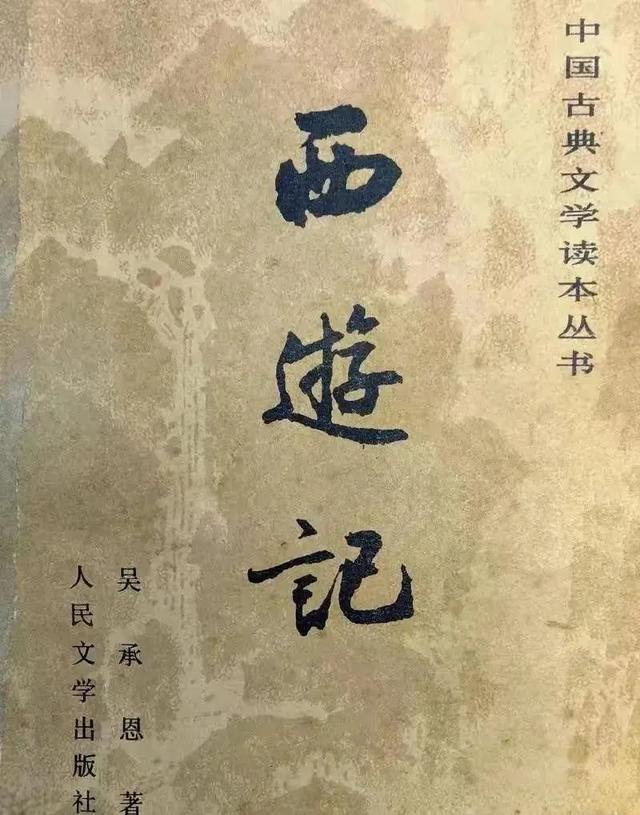 中国古典文学读本丛书
西遊記
吴承恩 著
人民文学出版社